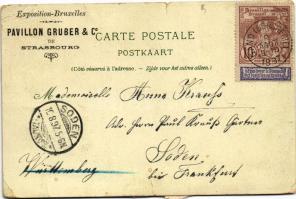 Exposition-Bruxelles
PAVILLON GRUBER & Cie
DE
STRASBOURG
CARTE POSTALE
POSTKAART
(Côté réservé à l'adresse. — Zijde voor het adres alleen.)
Mademoiselle Anna Krauss
Adr. Herrn Paul Krauss Gärtner
Soden
bei Frankfurt
Württemberg
SODEN
10